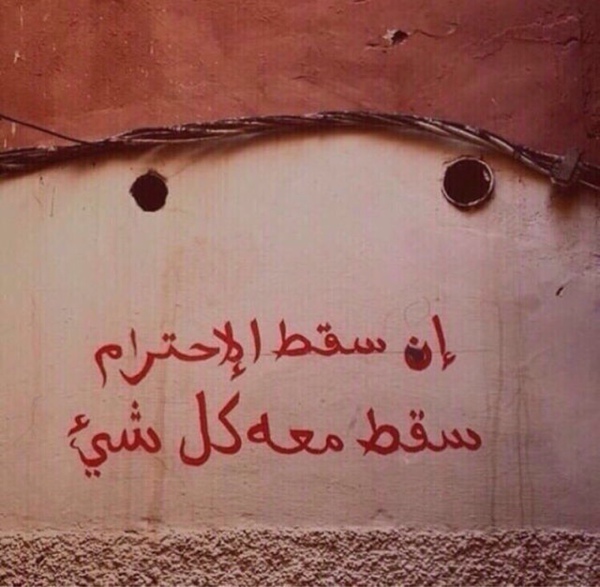 إن سقط الإحترام
سقط معه كل شيئ